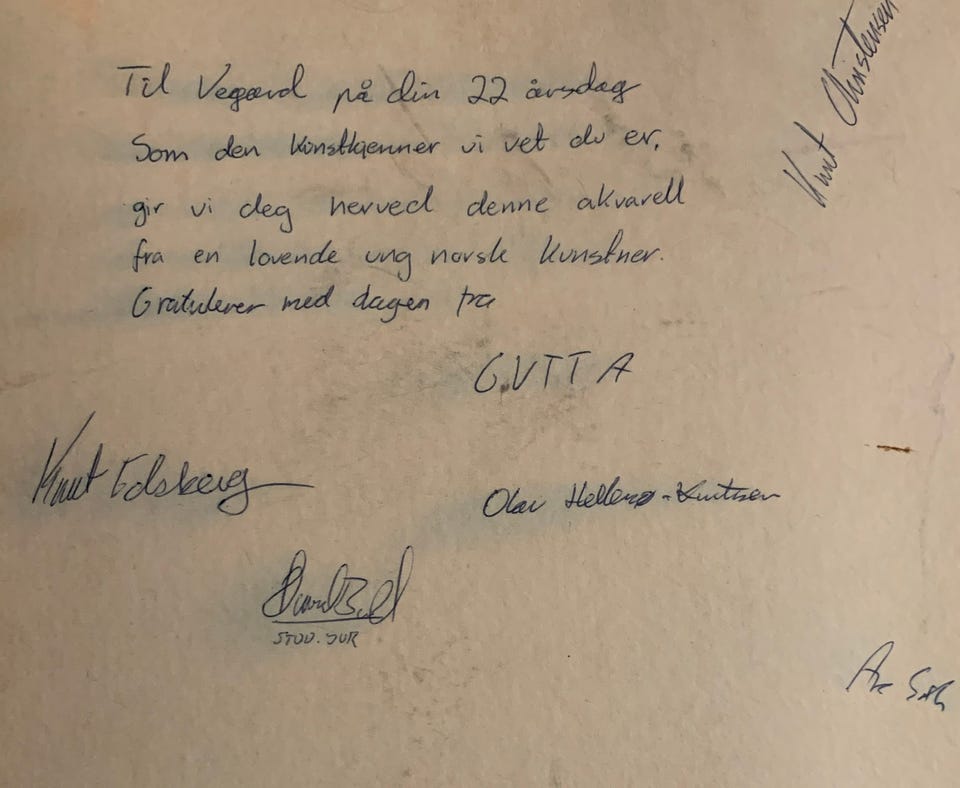 Til Vegard på din 22 årsdag
Som den kunstkjenner vi vet du er,
gir vi deg herved denne akvarell
fra en lovende ung norsk kunstner.
Gratulerer med dagen fra
GUTTA
Knut Christensen
Knut Edsberg
Olav Hellenes-Knutsen
STUD. JUR